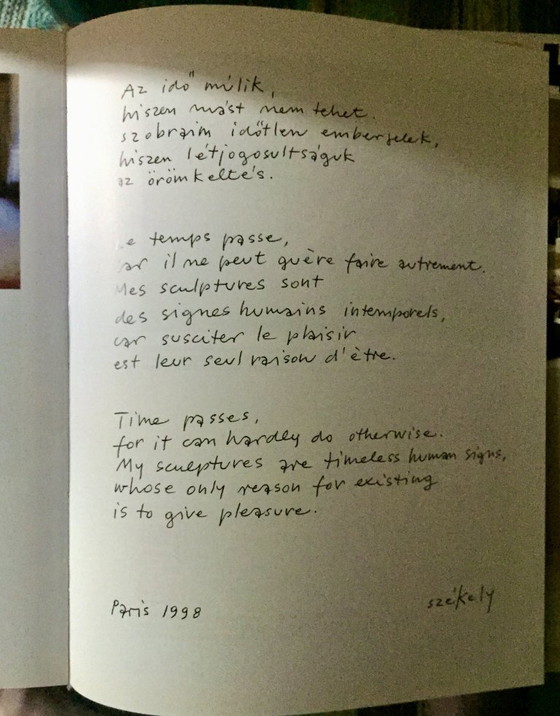 Az idő múlik,
hiszen mást nem tehet.
szobraim időtlen emberjelek,
hiszen létjogosultságuk
az örömkeltés.
Le temps passe,
car il ne peut guère faire autrement.
Mes sculptures sont
des signes humains intemporels,
car susciter le plaisir
est leur seul raison d'être.
Time passes,
for it can hardly do otherwise.
My sculptures are timeless human signs,
whose only reason for existing
is to give pleasure.
Paris 1998
székely